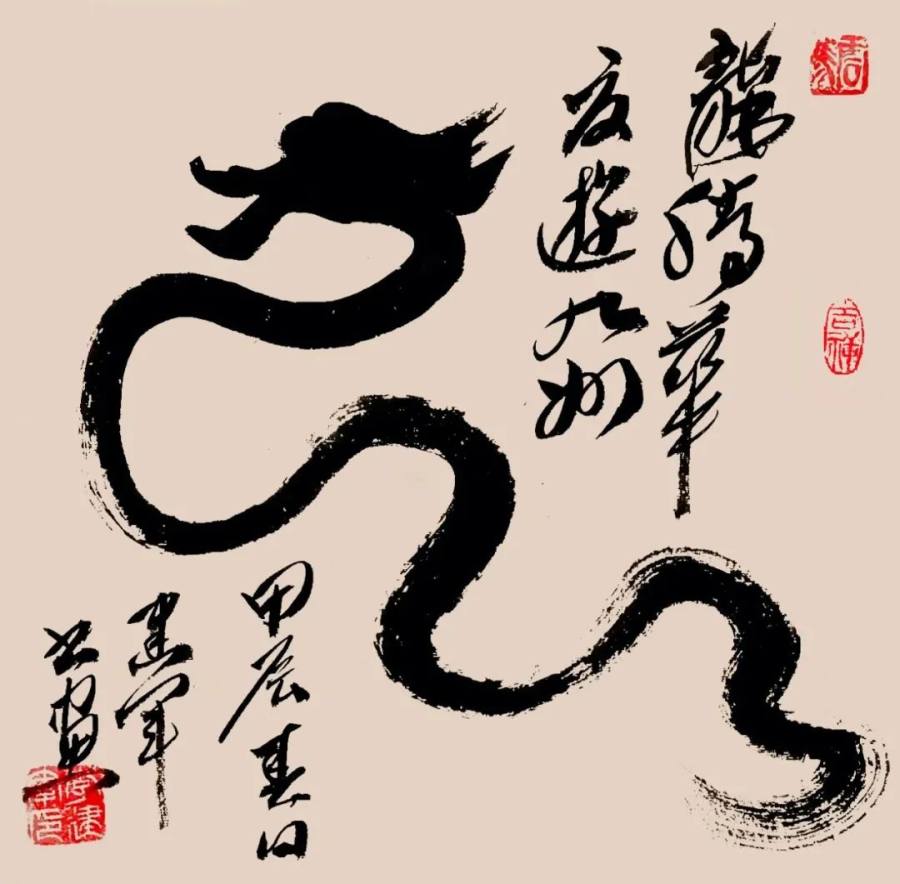 龍騰華
夏遊九州
甲辰春日
建軍
书畫